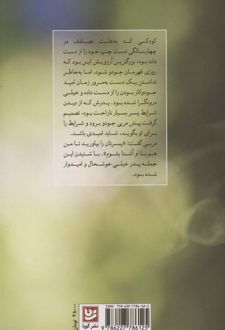 کودکی که به‌علت تصادف در
چهارسالگی دست چپ خود را از دست
داده بود، بزرگترین آرزویش این بود که
روزی قهرمان جودو شود، اما به‌خاطر
نداشتن یک دست به‌مرور زمان امید
درونگرا شده بود. پدرش که از دیدن
شرایط پسر بسیار ناراحت بود، تصمیم
گرفت پیش مربی جودو برود و شرایط را
برای او بگوید، شاید امیدی باشد.
مربی گفت: «پسرتان را بیاورید تا من
هم با او آشنا بشوم». با شنیدن این
جمله پدر خیلی خوشحال و امیدوار
شده بود.
نشر گویا
۲۸۰۰۰ تومان